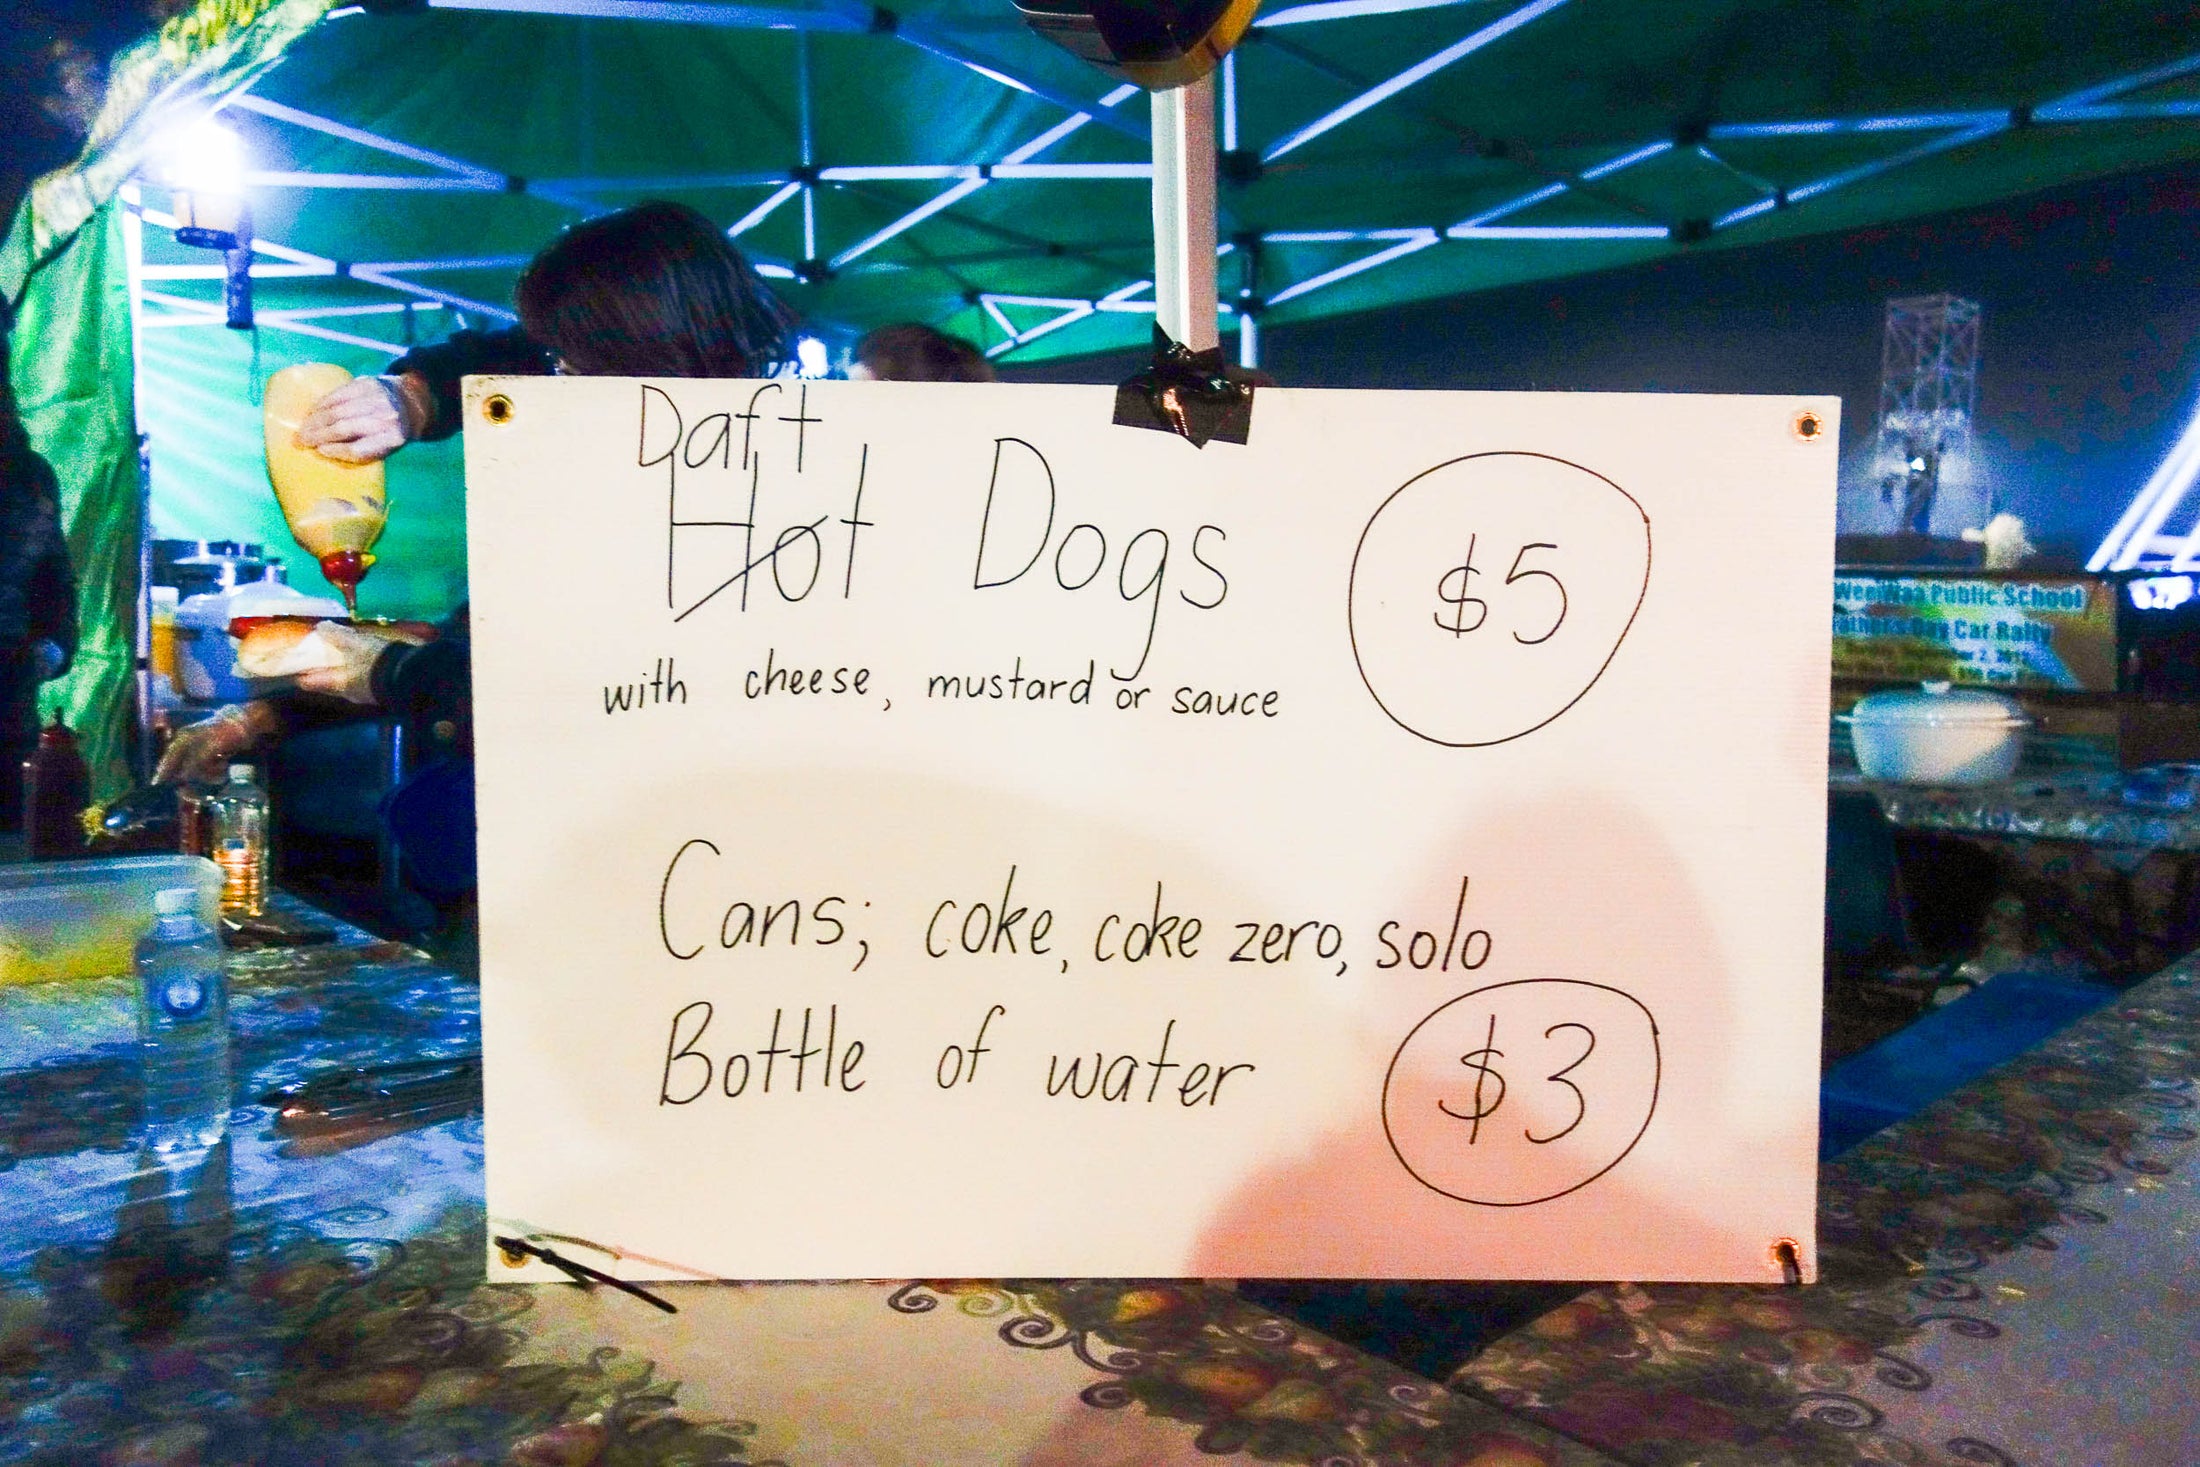 Daft
Hot Dogs
$5
with cheese, mustard or sauce
Cans; coke, coke zero, solo
Bottle of water
$3
Wee Waa Public School
Father's Day Car Rally